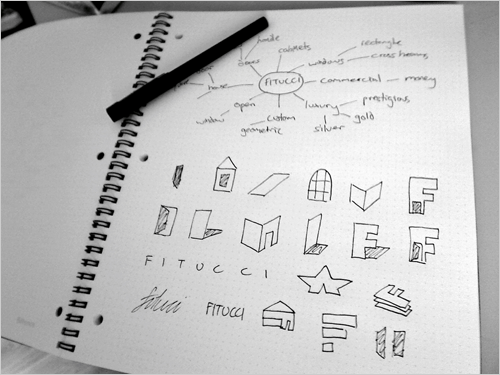 made
cabinets
rectangle
doors
windows
cross beams
house
FITUCCI
commercial
money
open
luxury
prestigious
window
custom
gold
geometric
silver
F
F
E
F
FITUCCI
Fitucci
FITUCCI
F